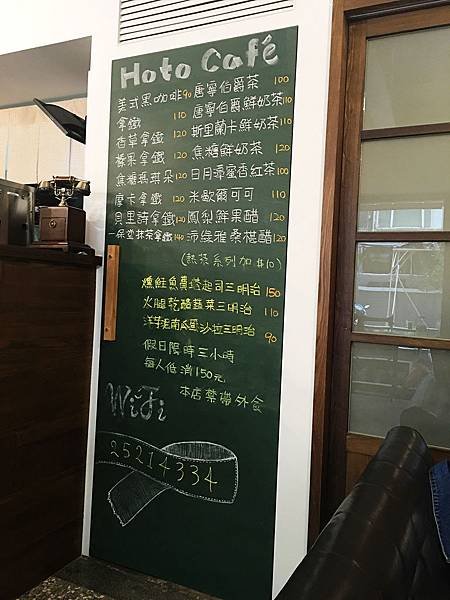 Hoto Café
美式黑咖啡 90 唐寧伯爵茶 100
拿鐵 110 唐寧伯爵鮮奶茶 110
香草拿鐵 120 斯里蘭卡鮮奶茶 110
榛果拿鐵 120 焦糖鮮奶茶 120
焦糖瑪琪朵 120 日月潭蜜香紅茶 100
摩卡拿鐵 120 米歇爾可可 110
貝里詩拿鐵 120 鳳梨鮮果醋 120
一保堂抹茶拿鐵 140 沛緹雅桑椹醋 120
(熱茶系列加$10)
燻鮭魚農塔起司三明治 150
火腿乾酪蔬菜三明治 110
洋芋泥南瓜蛋沙拉三明治 90
假日限時三小時
每人低消150元
本店禁帶外食
WiFi
25214334